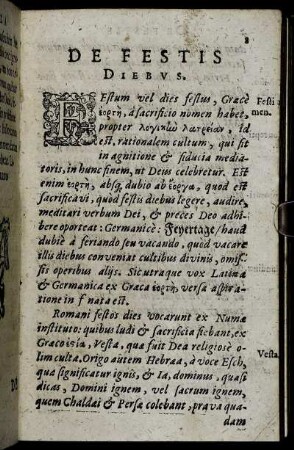 DE FESTIS
DIEBVS.
FEstum vel dies festus, Græcè
ἑορτὴ, à sacrificio nomen habet,
propter λογικὴν λατρείαν, id
est, rationalem cultum, qui fit
in agnitione & fiducia media-
toris, in hunc finem, ut Deus celebretur. Est
enim ἑορτὴ, absq́; dubio ab ἔοργα, quod est
sacrificavi, quod festis diebus legere, audire,
meditari verbum Dei, & preces Deo adhi-
bere oporteat: Germanicè: Feyertage/ haud
dubiè à feriando seu vacando, quod vacare
illis diebus conveniat cultibus divinis, omis-
sis operibus alijs. Sic utraque vox Latina
& Germanica ex Græca ἑορτὴ, versa aspira-
tione in f nata est.
Romani festos dies vocarunt ex Numæ
instituto: quibus ludi & sacrificia fiebant, ex
Græco ἑστία, Vesta, quæ fuit Dea religiosè o-
lim culta. Origo autem Hebræa, à voce Esch,
quæ significatur ignis, & Ia, dominus, quasi
dicas, Domini ignem, vel sacrum ignem,
quem Chaldæi & Persæ colebant, prava qua-
dam
Festi
men.
Vesta.